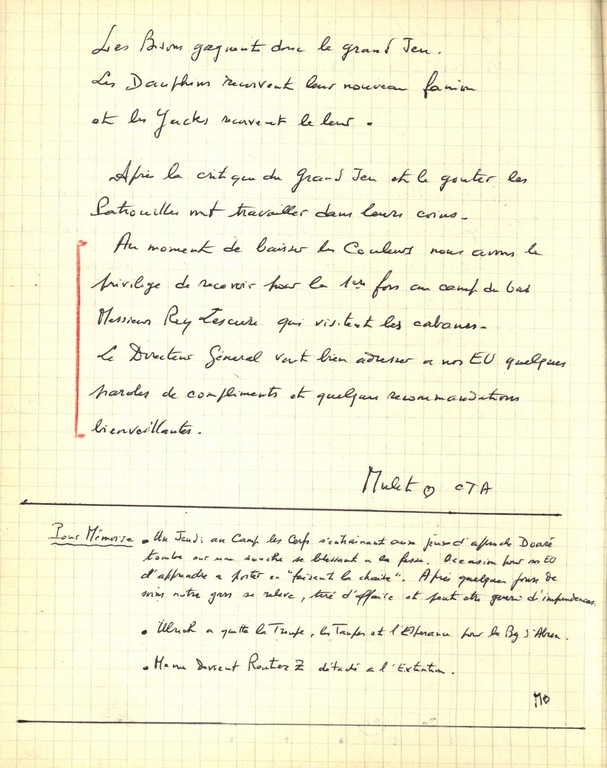 Les Bisons gagnent donc le grand Jeu.
Les Dauphins reçoivent leur nouveau fanion
et les Yacks reçoivent le leur.
Après la critique du Grand Jeu et le gouter les
Patrouilles vont travailler dans leurs coins.
Au moment de baisser les Couleurs nous avons le
privilege de recevoir pour la 1ere fois au camp du bas
Messieurs Rey Lescure qui visitent les cabanes.
Le Directeur Général veut bien adresser a nos EU quelques
paroles de compliments et quelques recommandations
bienveillantes.
Mulet CTA
Pour Mémoire • Un Jeudi au Camp les Cerfs s'entrainant aux jeux d'approche Doaré
tombe sur une souche se blessant a la fesse. Occasion pour nos EU
d'apprendre a porter en "faisant la chaise". Après quelques jours de
soins notre gars se releve, tiré d'affaire et peut etre gueri d'imprudences.
• Ulrich a quitté la Troupe, les Taupes et l'Esperance pour le
• devient Routier Z détaché a l'Extention.